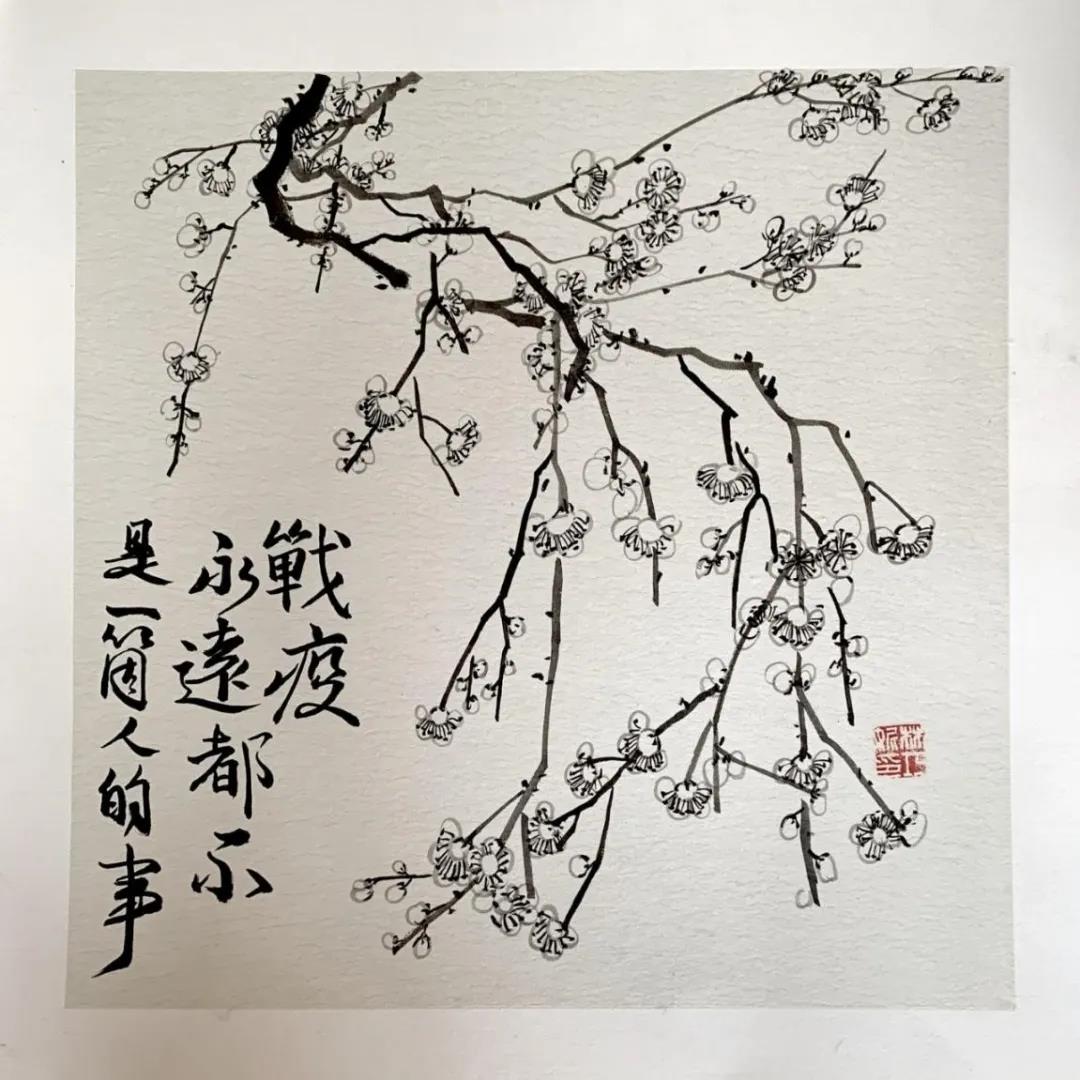 戰疫
永遠都不
是一箇人的事